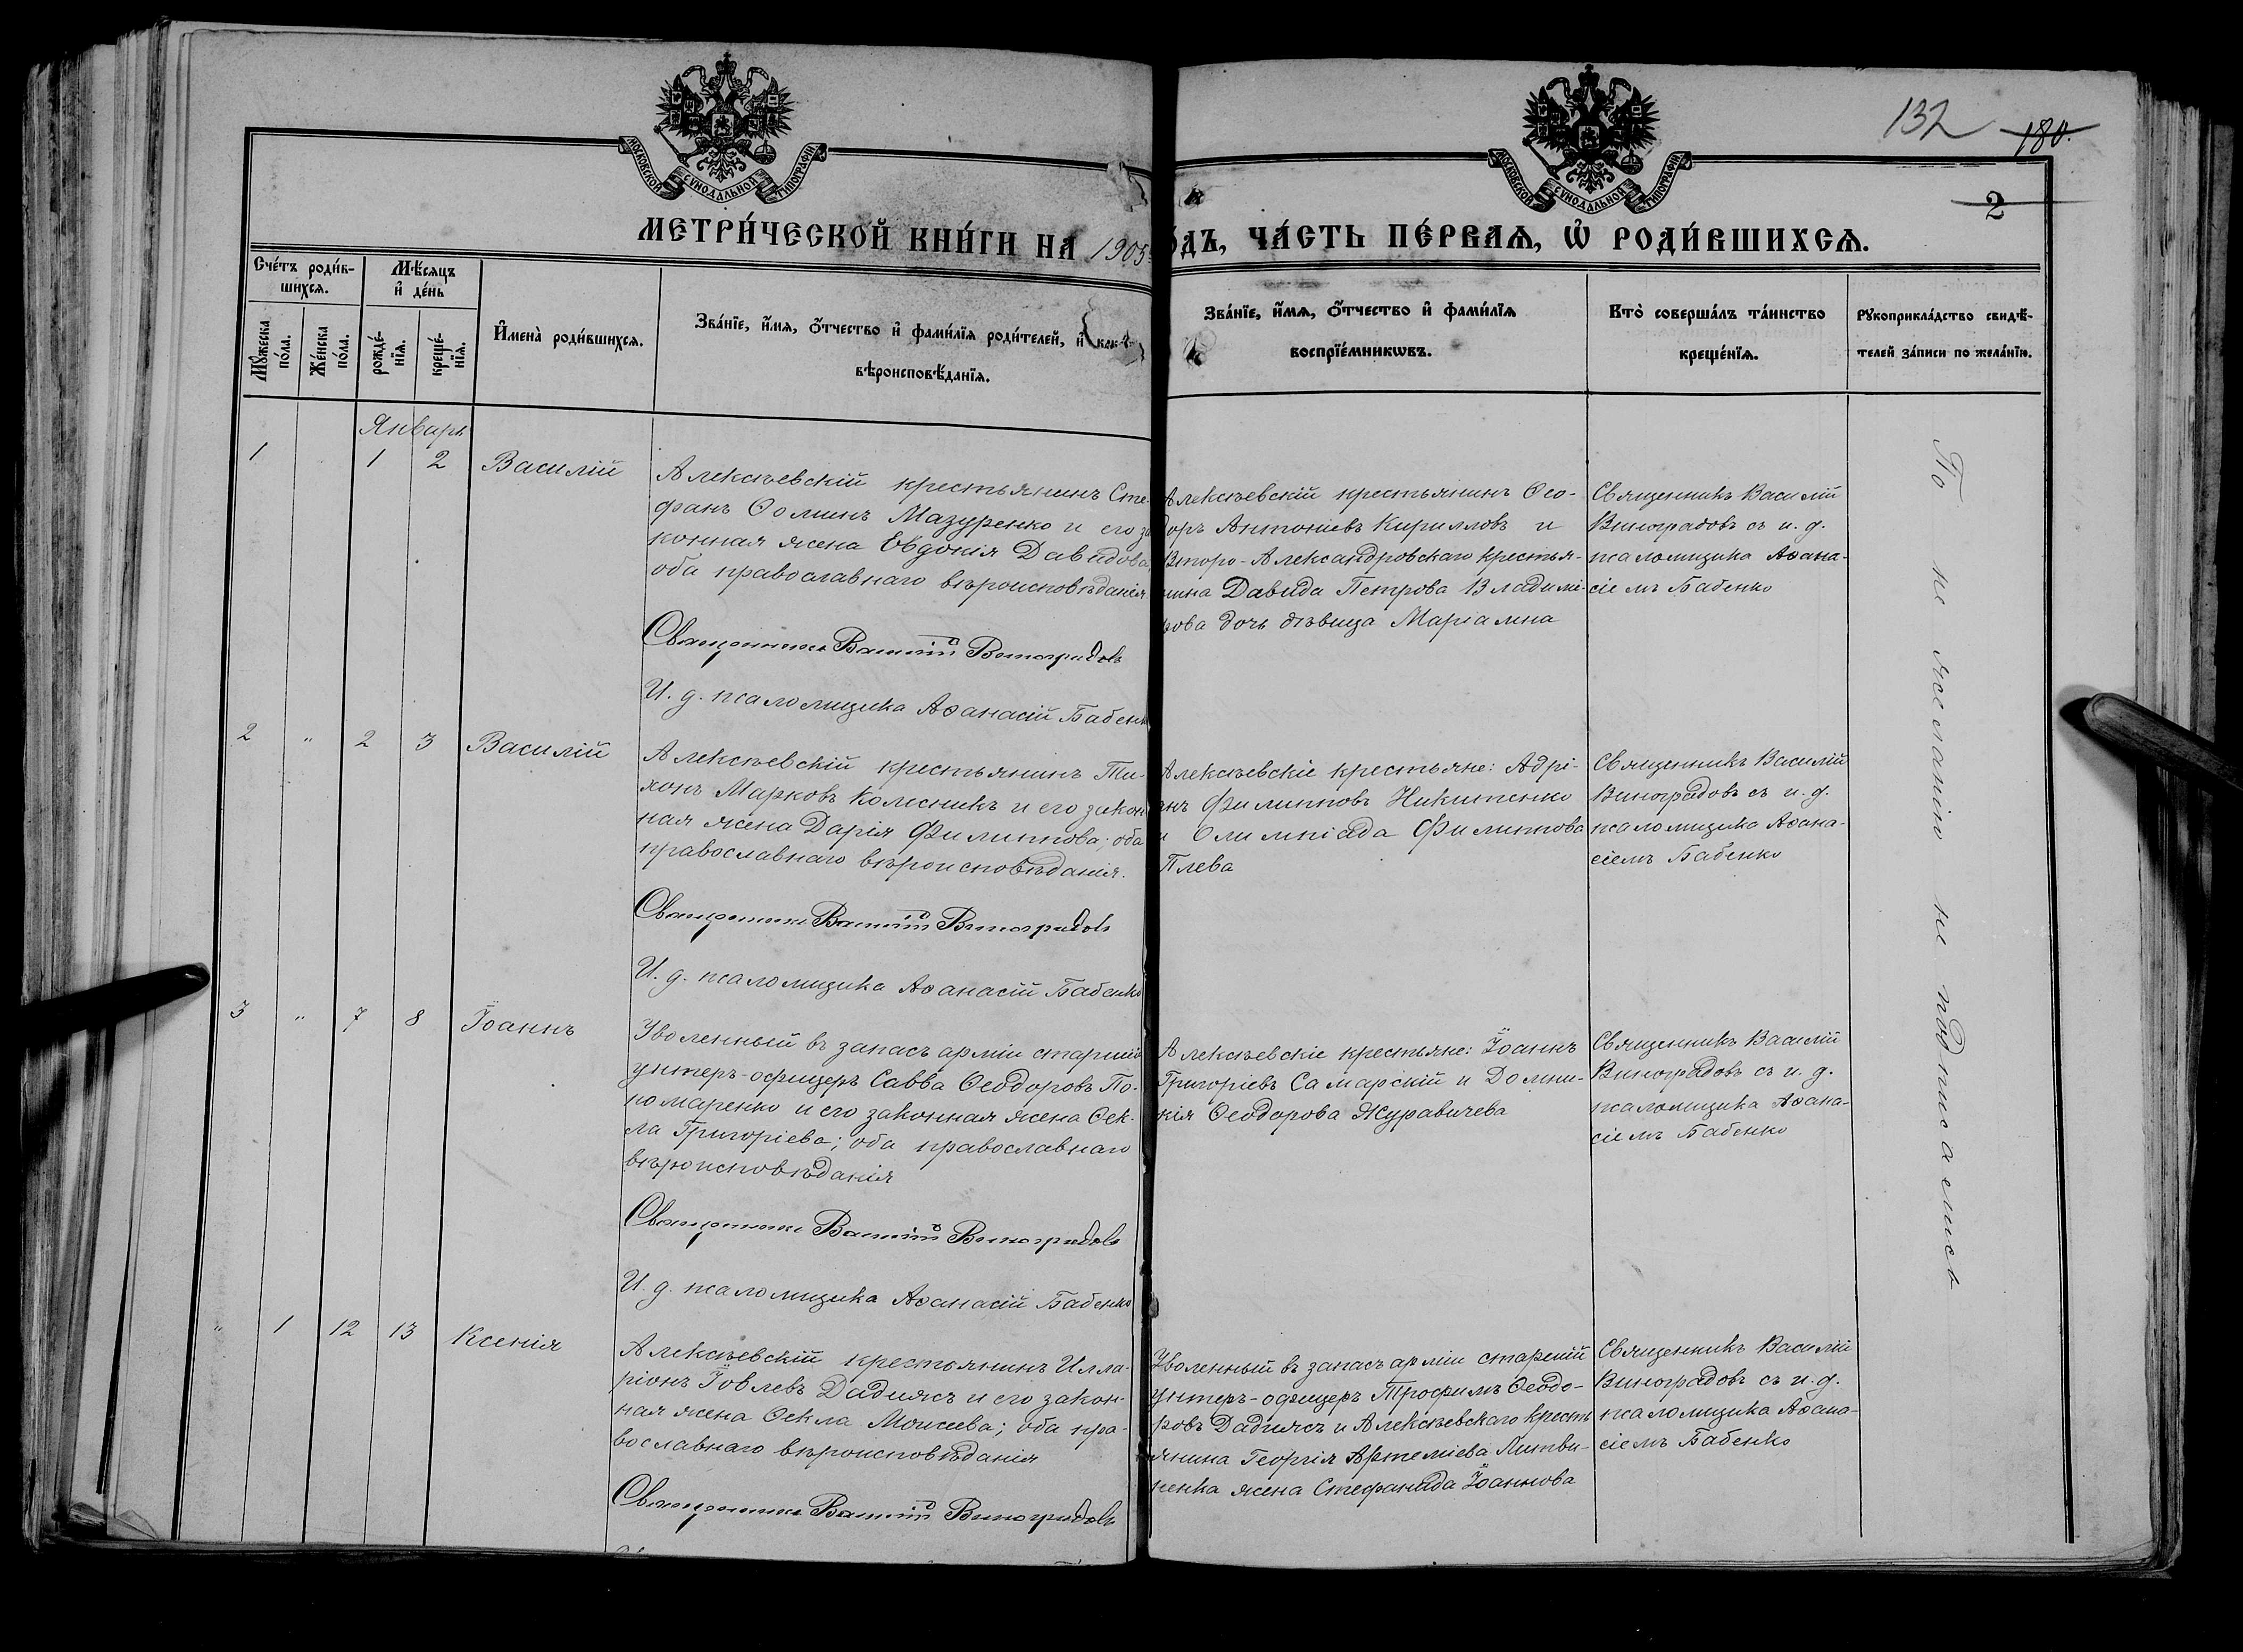 МОСКОВСКОЙ СѴНОДАЛЬНОЙ ТИПОГРАФІИ
МОСКОВСКОЙ СѴНОДАЛЬНОЙ ТИПОГРАФІИ
132 180.
2
МЕТРИ́ЧЕСКОЙ КНИ́ГИ НА 1905
ѻ́ДЪ, ЧА́СТЬ ПЕ́РВАѦ, Ѡ҆ РОДИ́ВШИХСѦ.
Сче́тъ роди́в-
шихсѧ.
Мѣ́сѧцъ
и҆ де́нь
Мꙋ́жеска
по́ла.
Же́нска
по́ла.
рожде́-
нїѧ.
креще́-
нїѧ.
И҆мена̀ роди́вшихсѧ.
Зва́нїе, и҆́мѧ, ѻ҆́тчество и҆ фами́лїѧ роди́телей, и҆ как
вѣроисповѣ́данїѧ.
Зва́нїе, и҆́мѧ, ѻ҆́тчество и҆ фами́лїѧ
воспрїе́мникѡвъ.
Кто̀ соверша́лъ та́инство
креще́нїѧ.
Рꙋкоприкла́дство свидѣ́-
телей за́писи по жела́нїю.
Январь
1 1 2 Василій
Алексѣевскій крестьянинъ Сте-
фанъ Ѳоминъ Мазуренко и его за
конная жена Евдокія Давидова,
оба православнаго вѣроисповѣданія.
Священникъ Василій Виноградовъ
И. д. псаломщика Аѳанасій Бабенк
Алексѣевскій крестьянинъ Ѳео-
доръ Антоніевъ Кирилловъ и
Второ-Александровскаго крестья-
нина Давида Петрова Владимі-
рова дочь дѣвица Маріамна
Священникъ Василій
Виноградовъ съ и. д.
псаломщика Аѳана-
сіемъ Бабенко
По не желанію не подписались
2 " 2 3 Василій
Алексѣевскій крестьянинъ Ти-
хонъ Марковъ Колесникъ и его закон
ная жена Дарія Филиппова; оба
православнаго вѣроисповѣданія.
Священникъ Василій Виноградовъ
И. д. псаломщика Аѳанасій Бабенко
Алексѣевскіе крестьяне: Адрі-
анъ Филипповъ Никитенко
и Олимпіада Филиппова
Плева
Священникъ Василій
Виноградовъ съ и. д.
псаломщика Аѳана-
сіемъ Бабенко
3 " 7 8 Іоаннъ
Уволенный въ запасъ арміи старшій
унтеръ-офицеръ Савва Ѳеодоровъ По-
номаренко и его законная жена Ѳек-
ла Григоріева; оба православнаго
вѣроисповѣданія
Священникъ Василій Виноградовъ
И. д. псаломщика Аѳанасій Бабенко
Алексѣевскіе крестьяне: Іоаннъ
Григоріевъ Самарскій и Домни-
кія Ѳеодорова Журавичева
Священникъ Василій
Виноградовъ съ и. д.
псаломщика Аѳана-
сіемъ Бабенко
" 1 12 13 Ксенія
Алексѣевскій крестьянинъ Илла-
ріонъ Іовлевъ Дадиясъ и его закон-
ная жена Ѳекла Моисеева; оба пра-
вославнаго вѣроисповѣданія
Священникъ Василій Виноградовъ
Уволенный въ запасъ арміи старшій
унтеръ-офицеръ Трофимъ Ѳеодо-
ровъ Дадиясъ и Алексѣевскаго кресть
янина Георгія Артеміева Литви-
ненка жена Стефанида Іоаннова
Священникъ Василій
Виноградовъ съ и. д.
псаломщика Аѳана-
сіемъ Бабенко